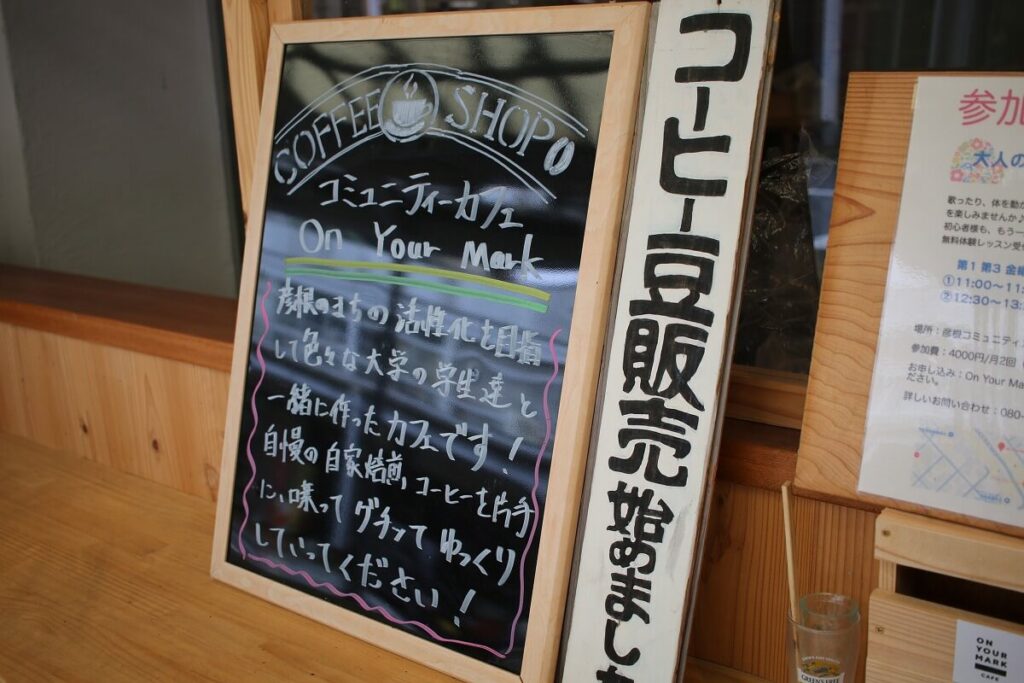 COFFEE SHOP
コミュニティーカフェ
On Your Mark
彦根のまちの活性化を目指
して色々な大学の学生達と
一緒に作ったカフェです!
自慢の自家焙煎コーヒーを片手
に、喋って グチって ゆっくり
していってください!
コーヒー豆販売始めました
参加
大人の
歌ったり、体を動か
を楽しみませんか♪
初心者様も、もう一
無料体験レッスン受
第1 第3 金曜
①11:00〜11:
②12:30〜13:
場所:彦根コミュニティ
参加費:4000円/月2回
お申し込み:On Your Ma
ださい。
詳しいお問い合わせ:080-
ON
YOUR
MARK
CAFE